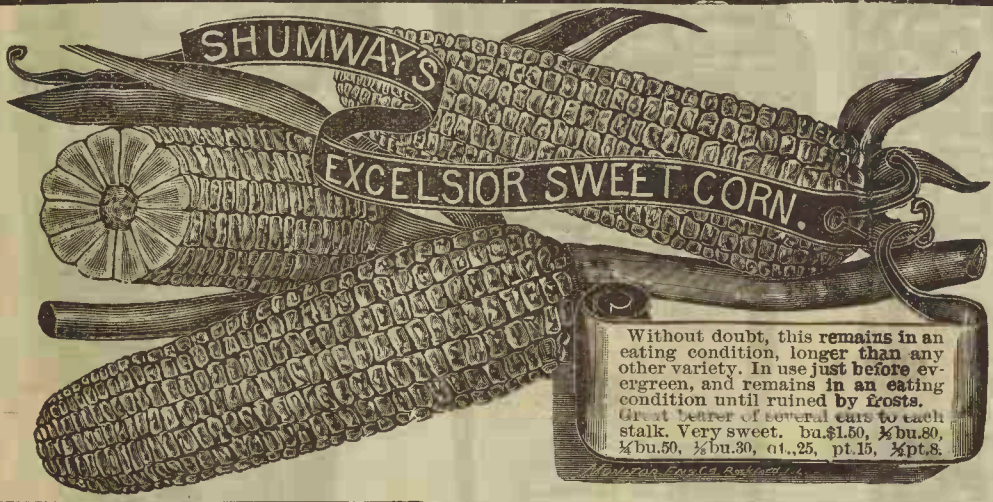 SHUMWAY'S
EXCELSIOR SWEET CORN.
Without doubt, this remains in an
eating condition, longer than any
other variety. In use just before ev-
ergreen, and remains in an eating
condition until ruined by frosts.
Great bearer of several ears to each
stalk. Very sweet. bu.$1.50, ½bu.80,
¼bu.50, ⅛bu.30, qt.,25, pt.15, ½pt.8.
MONITOR ENG. CO. Rockford, ILL.